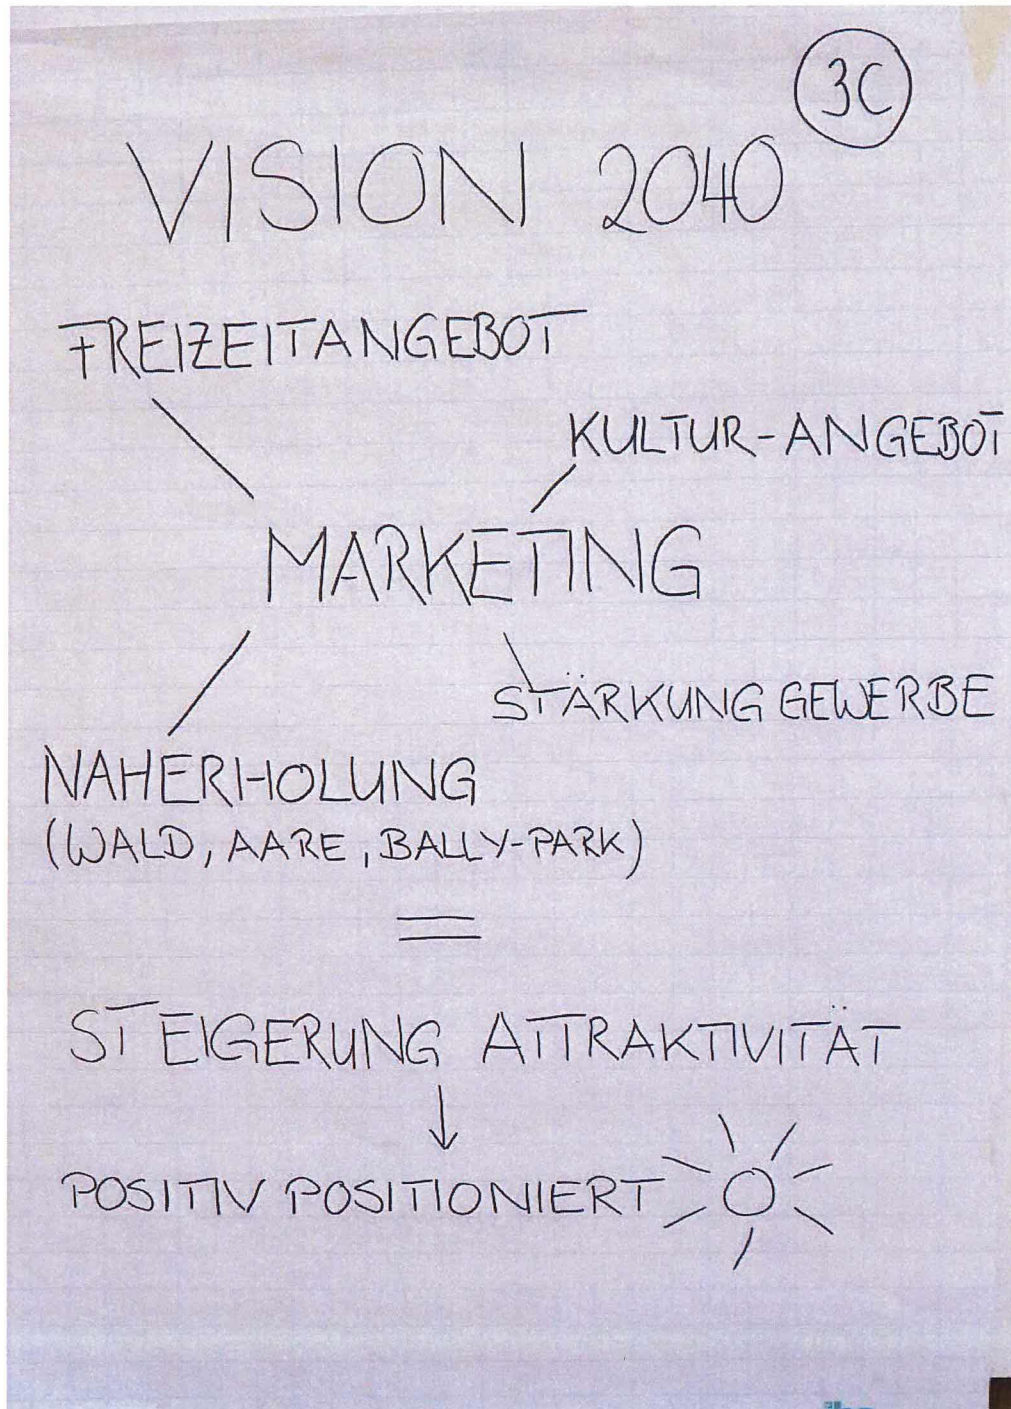 3C
VISION 2040
FREIZEITANGEBOT
KULTUR-ANGEBOT
MARKETING
STÄRKUNG GEWERBE
NAHERHOLUNG
(WALD, AARE, BALLY-PARK)
=
STEIGERUNG ATTRAKTIVITÄT
POSITIV POSITIONIERT